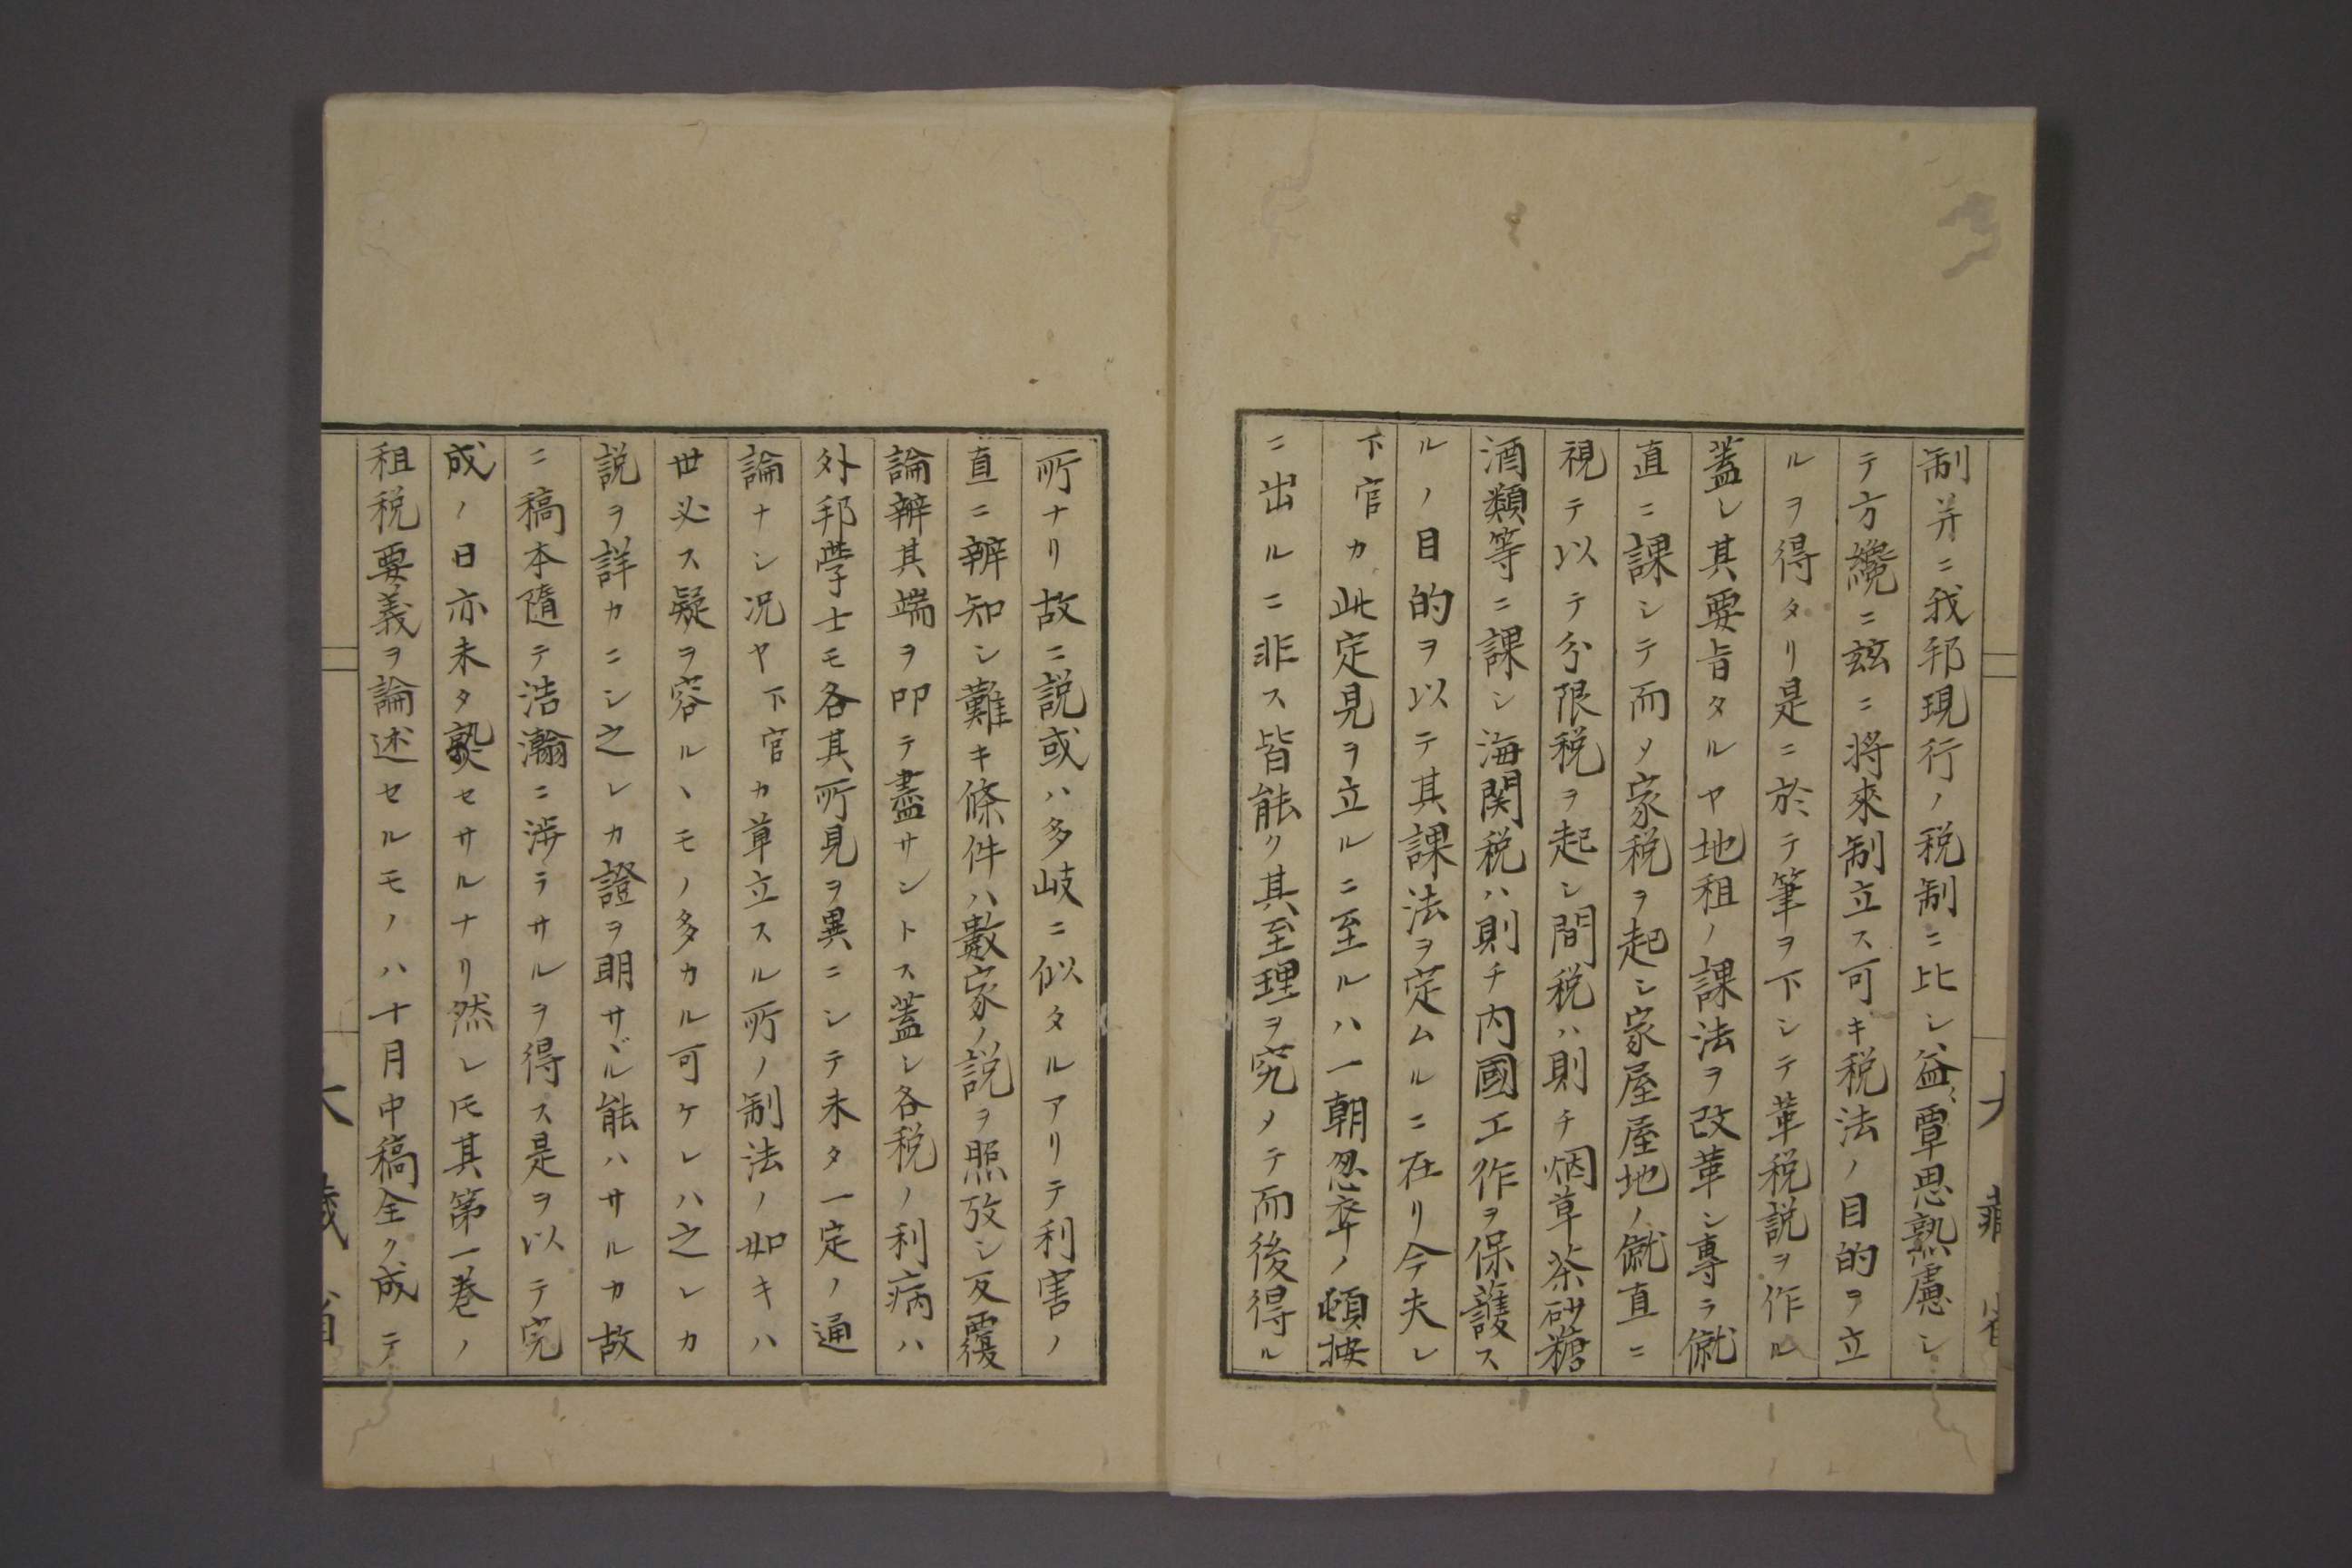 制并ニ我邦現行ノ税制ニ比シ益〻覃思熟慮シ
テ方纔ニ玆ニ將來制立ス可キ税法ノ目的ヲ立
ルヲ得タリ是ニ於テ筆ヲ下シテ革税説ヲ作ル
蓋シ其要旨タルヤ地租ノ課法ヲ改革シ專ラ僦
直ニ課シテ而メ家税ヲ起シ家屋屋地ノ僦直ニ
視テ以テ分限税ヲ起シ間税ハ則チ烟草茶砂糖
酒類等ニ課シ海関税ハ則チ内國工作ヲ保護ス
ルノ目的ヲ以テ其課法ヲ定ムルニ在リ今夫レ
下官カ此定見ヲ立ルニ至ルハ一朝忽卒ノ頓按
ニ出ルニ非ス皆能ク其至理ヲ究メテ而後得ル
大藏省
所ナリ故ニ説或ハ多岐ニ似タルアリテ利害ノ
直ニ辨知シ難キ條件ハ數家ノ説ヲ照攷シ反覆
論辨其端ヲ叩テ盡サントス蓋シ各税ノ利病ハ
外邦學士モ各其所見ヲ異ニシテ未タ一定ノ通
論ナシ况ヤ下官カ草立スル所ノ制法ノ如キハ
世必ス疑ヲ容ルヽモノ多カル可ケレハ之レカ
説ヲ詳カニシ之レカ證ヲ明サヾル能ハサルカ故
ニ稿本隨テ浩瀚ニ渉ラサルヲ得ス是ヲ以テ完
成ノ日亦未タ熟セサルナリ然レ𪜈其第一巻ノ
租税要義ヲ論述セルモノハ十月中稿全ク成テ
大藏省